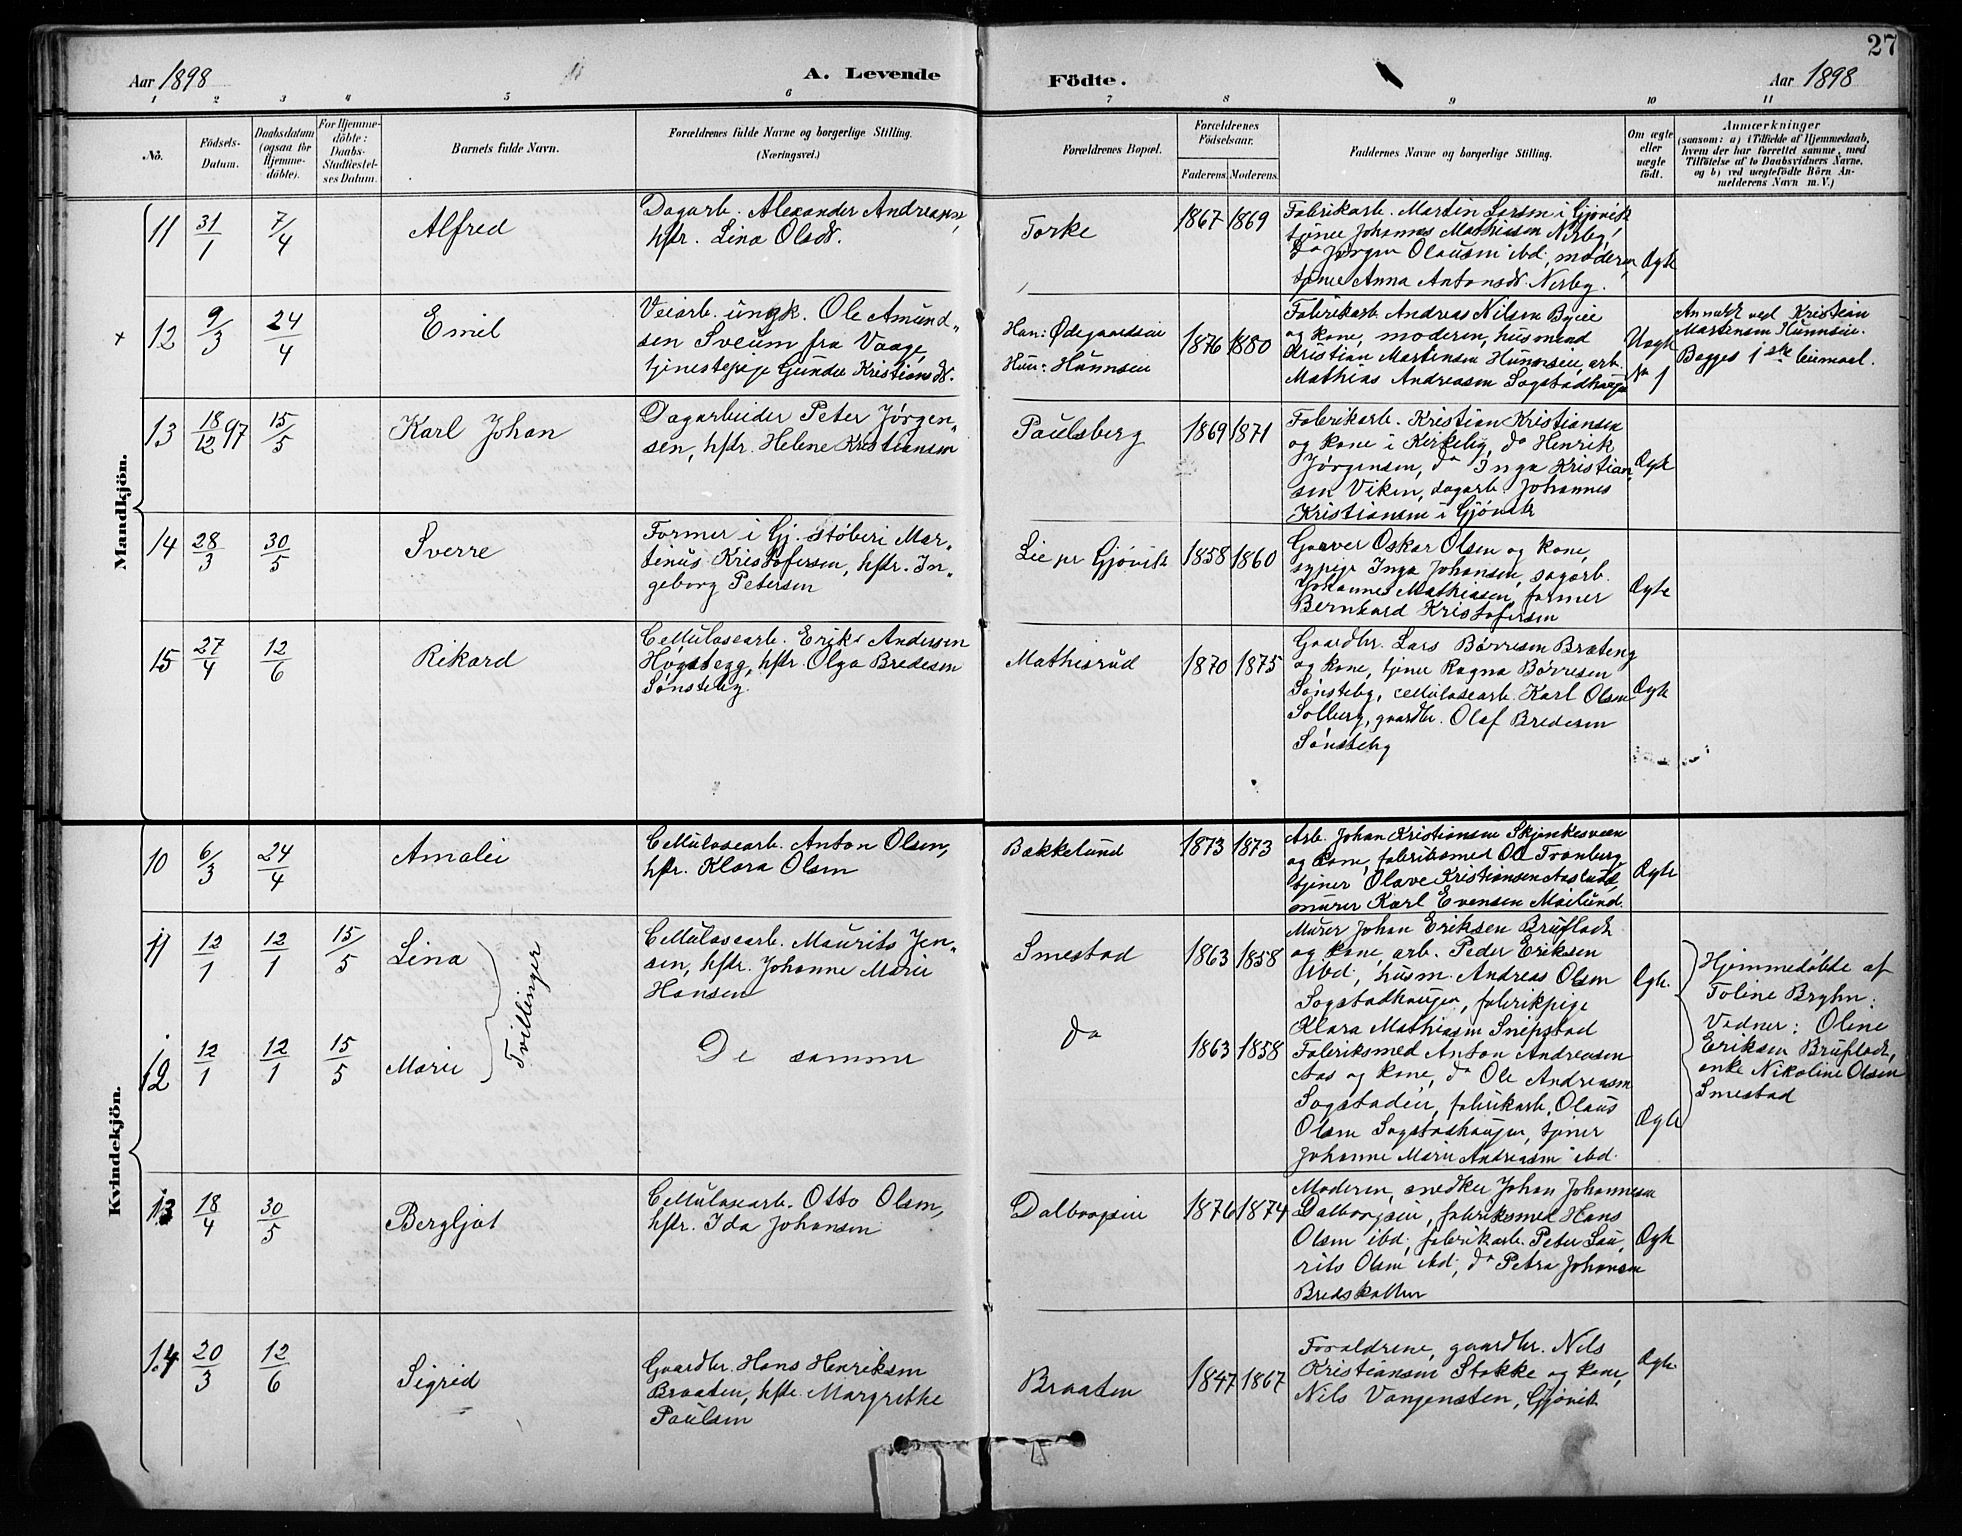 27
Aar 1898
A. Levende
Födte.
Aar 1898
1 2 3 4 5 6 7 8 9 10 11
No.
Födsels-
Datum.
Daabsdatum
(ogsaa för
Hjemme-
döbte).
For Hjemme-
döbte:
Daabs-
Stadfæstel-
ses Datum.
Barnets fulde Navn.
Forældrenes fulde Navne og borgerlige Stilling.
(Næringsvei.)
Forældrenes Bopæl.
Forældrenes
Födselsaar.
Faderens. Moderens.
Faddernes Navne og borgerlige Stilling.
Om ægte
eller
uægte
födt.
Anmærkninger
(saasom: a) i Tilfælde af Hjemmedaab,
hvem der har forrettet samme, med
Tilföielse af to Daabsvidners Navne,
og b) ved uægtefödte Börn An-
melderens Navn m. V.)
Mandkjön.
11 31/1 7/4
Alfred
Dagarb. Alexander Andreassen,
hstr. Lina Olsdr.
Torke
1867 1869
Fabrikarb. Martin Larsen i Gjøvik
tjener Johannes Mathiasen Nerby,
do Jørgen Olausen ibd, moderen,
tjener Anna Antonsdr. Nerby.
Ægte
+ 12 9/3 24/4
Emil
Veiarb. ungk. Ole Amund-
sen Sveum fra Vaage,
tjenestepige Gunda Kristiansdr.
Han: Ødegaardseie
Hun: Hunnseie
1876 1880
Fabrikarb. Andreas Nilsen Byeie
og kone, moderen, husmand
Kristian Martinsen Hunnseie, arb.
Mathias Andreasen Sogstadhaugen
Uægte
No 1
Anmeldt ved Kristian
Martensen Hunnseie.
Begges 1ste leiermaal.
13 18/12 97 15/5
Karl Johan
Dagarbeider Peter Jørgen-
sen, hstr. Helene Kristiansen
Paulsberg
1869 1871
Fabrikarb. Kristian Kristiansen
og kone i Kirkeby, do Henrik
Jørgensen, do Inga Kristian-
sen Viken, dagarb. Johannes
Kristiansen i Gjøvik
Ægte
14 28/3 30/5
Sverre
Former i Gj. Støberi Mar-
tinus Kristofersen, hstr. In-
geborg Petersen
Lie pr Gjøvik
1858 1860
Garver Oskar Olsen og kone,
sypige Inga Johansen, sagarb.
Johannes Mathiasen, former
Bernhard Kristofersen
Ægte
15 27/4 12/6
Rikard
Cellulosearb. Erik Andersen
Høgstegg, hstr. Olga Bredesen
Sønsteby.
Mathisrud
1870 1875
Gaardbr. Lars Børresen Bræteng
og kone, tjener Ragna Børresen
Sønsteby, cellulosearb. Karl Olsen
Solberg, gaardbr. Olaf Bredesen
Sønsteby
Ægte
Kvindekjön.
10 6/3 24/4
Amalie
Cellulosearb. Anton Olsen,
hstr. Klara Olsen
Bakkelund
1873 1873
Arb. Johan Kristiansen Skjønkesveen
og kone, fabriksmed Ole Tranberg,
tjener Olave Kristiansen Aaslund,
murer Karl Evensen Moilund.
Ægte
11 12/1 12/1 15/5
Lina
Tvillinger
Cellulosearb. Maurits Jen-
sen, hstr. Johanne Marie
Hansen
Smestad
1863 1858
Murer Johan Eriksen Bruflodt
og kone, arb. Peder Eriksen
ibd, husm. Andreas Olsen
Sogstadhaugen, fabrikpige
Klara Mathiasen Snipstad
Ægte
Hjemmedøbte af
Toline Bryhn.
Vidner: Oline
Eriksen Bruflodt,
enke Nikoline Olsen
Smestad
12 12/1 12/1 15/5
Marie
De samme
do
1863 1858
Fabriksmed Anton Andreasen
Aas og kone, do Ole Andreasen
Sogstadeie, fabrikarb. Olaus
Olsen Sogstadhaugen, tjener
Johanne Marie Andreasen ibd.
Ægte
13 18/4 30/5
Bergljot
Cellulosearb. Otto Olsen,
hstr. Ida Johansen
Dalborgseie
1876 1874
Moderen, snedker Johan Johannesen
Dalborgseie, fabriksmed Hans
Olsen ibd, fabrikarb. Peter Lau-
rits Olsen ibd, do Petra Johansen
Bredskallen
Ægte
14 20/3 12/6
Sigrid
Gaardbr. Hans Henriksen
Braaten, hstr. Margrethe
Paulsen
Braaten
1847 1867
Forældrene, gaardbr. Nils
Kristiansen Stokke og kone,
Nils Vangensten, Gjøvik
Ægte